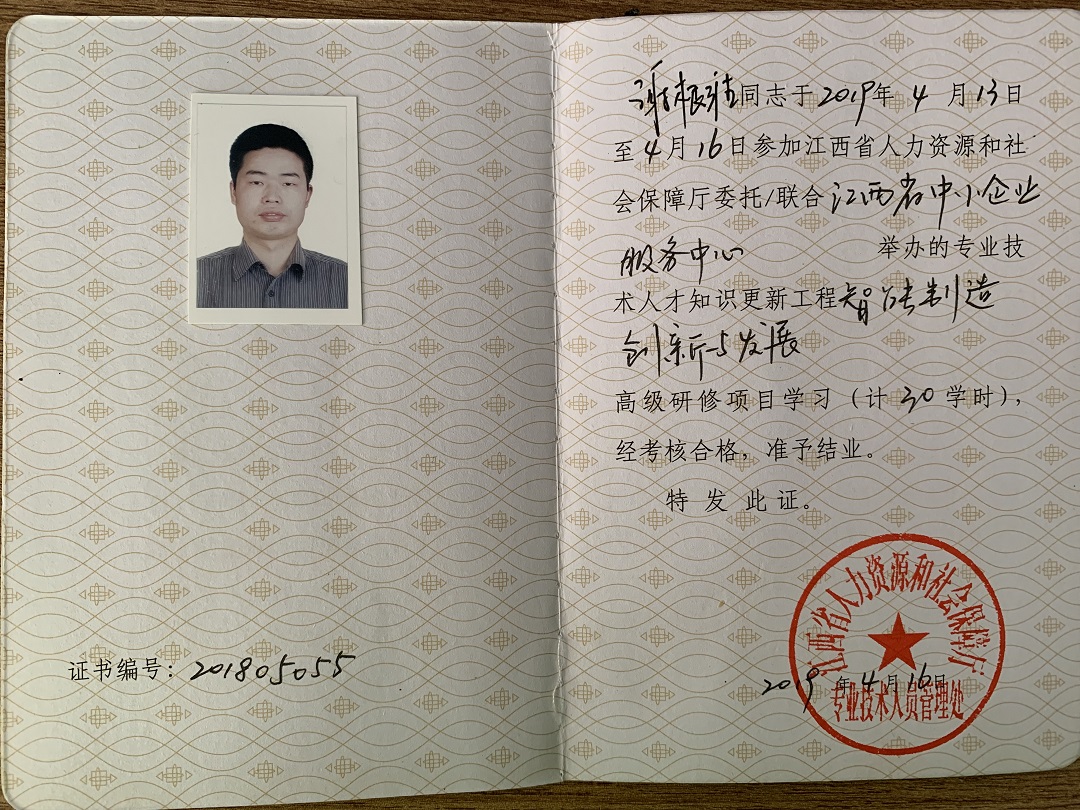 证书编号：201805055
谢振雄同志于2019年 4 月13日
至4月16日参加江西省人力资源和社
会保障厅委托/联合江西省中小企业
服务中心 举办的专业技
术人才知识更新工程智能制造
创新与发展
高级研修项目学习（计30学时），
经考核合格，准予结业。
特 发 此 证。
江西省人力资源和社会保障厅
2019 年 4 月 16日
专业技术人员管理处